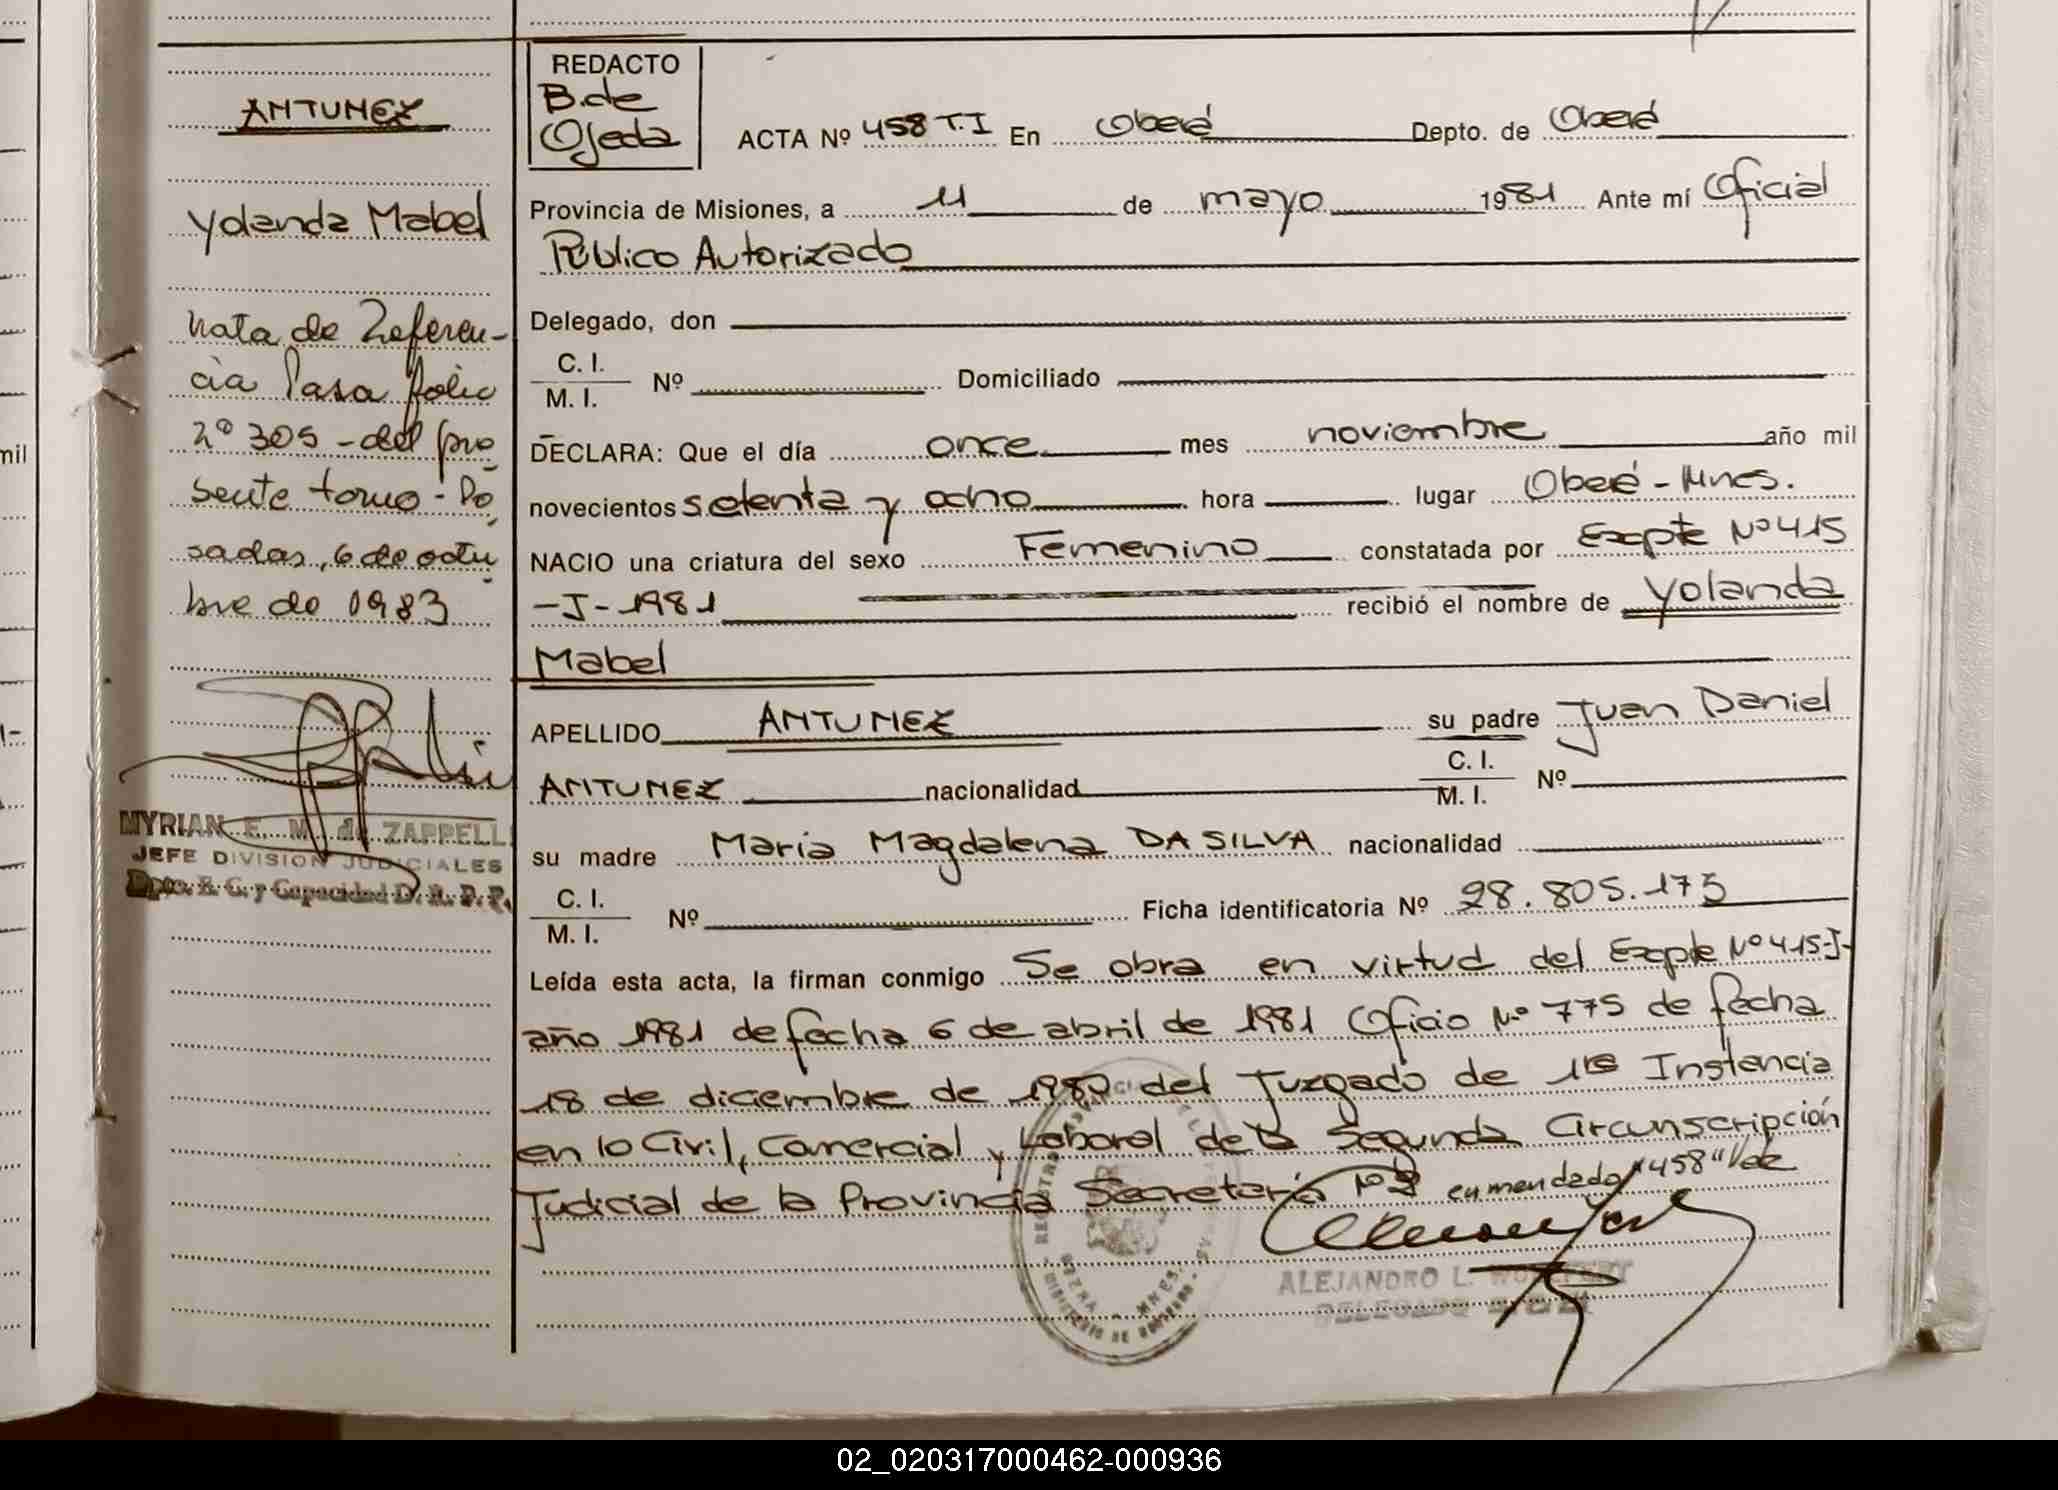 ANTUNEZ
Yolanda Mabel
Nota de Referen-
cia Pasa folio
Nº 305 - del pre
sente tomo - Po
sadas, 6 de octu
bre de 1983
MYRIAN E. M. de ZAPPELLI
JEFE DIVISION JUDICIALES
Dpto. E. C. y Capacidad D. R. P. P.
REDACTO
B. de
Ojeda
ACTA Nº 458 T.I En Oberá Depto. de Oberá
Provincia de Misiones, a 11 de mayo 1981 Ante mí Oficial
Público Autorizado
Delegado, don
C. I.
M. I. Nº Domiciliado
DECLARA: Que el día once mes noviembre año mil
novecientos setenta y ocho hora lugar Oberá - Mnes.
NACIO una criatura del sexo Femenino constatada por Expte Nº 415
-J-1981 recibió el nombre de Yolanda
Mabel
APELLIDO ANTUNEZ su padre Juan Daniel
ANTUNEZ nacionalidad C. I. M. I. Nº
su madre Maria Magdalena DA SILVA nacionalidad
C. I.
M. I. Nº Ficha identificatoria Nº 28.805.175
Leída esta acta, la firman conmigo Se obra en virtud del Expte Nº 415-J-
año 1981 de fecha 6 de abril de 1981 Oficio Nº 775 de fecha
18 de diciembre de 1980 del Juzgado de 1ra Instancia
en lo Civil, Comercial y Laboral de la Segunda Circunscripción
Judicial de la Provincia Secretaría Nº 2 enmendado "458" Vale
ALEJANDRO L.
DELEGADO
mil
02_020317000462-000936